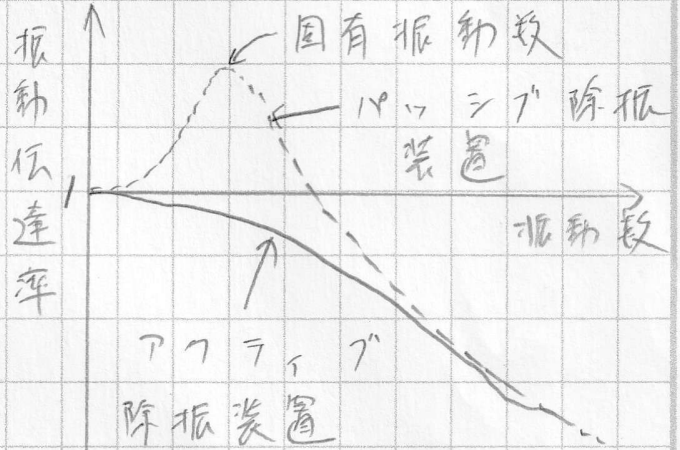 振動伝達率
固有振動数
パッシブ除振
装置
1
振動数
アクティブ
除振装置